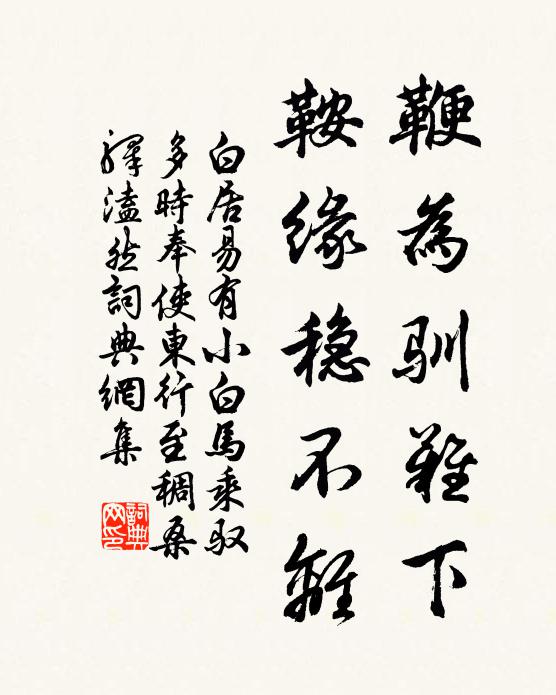 鞭為馴難下
鞍緣穩不離
白居易有小白馬乘馭
多時奉使東行至稠桑
驛溘然詞典網集
詞典
网印